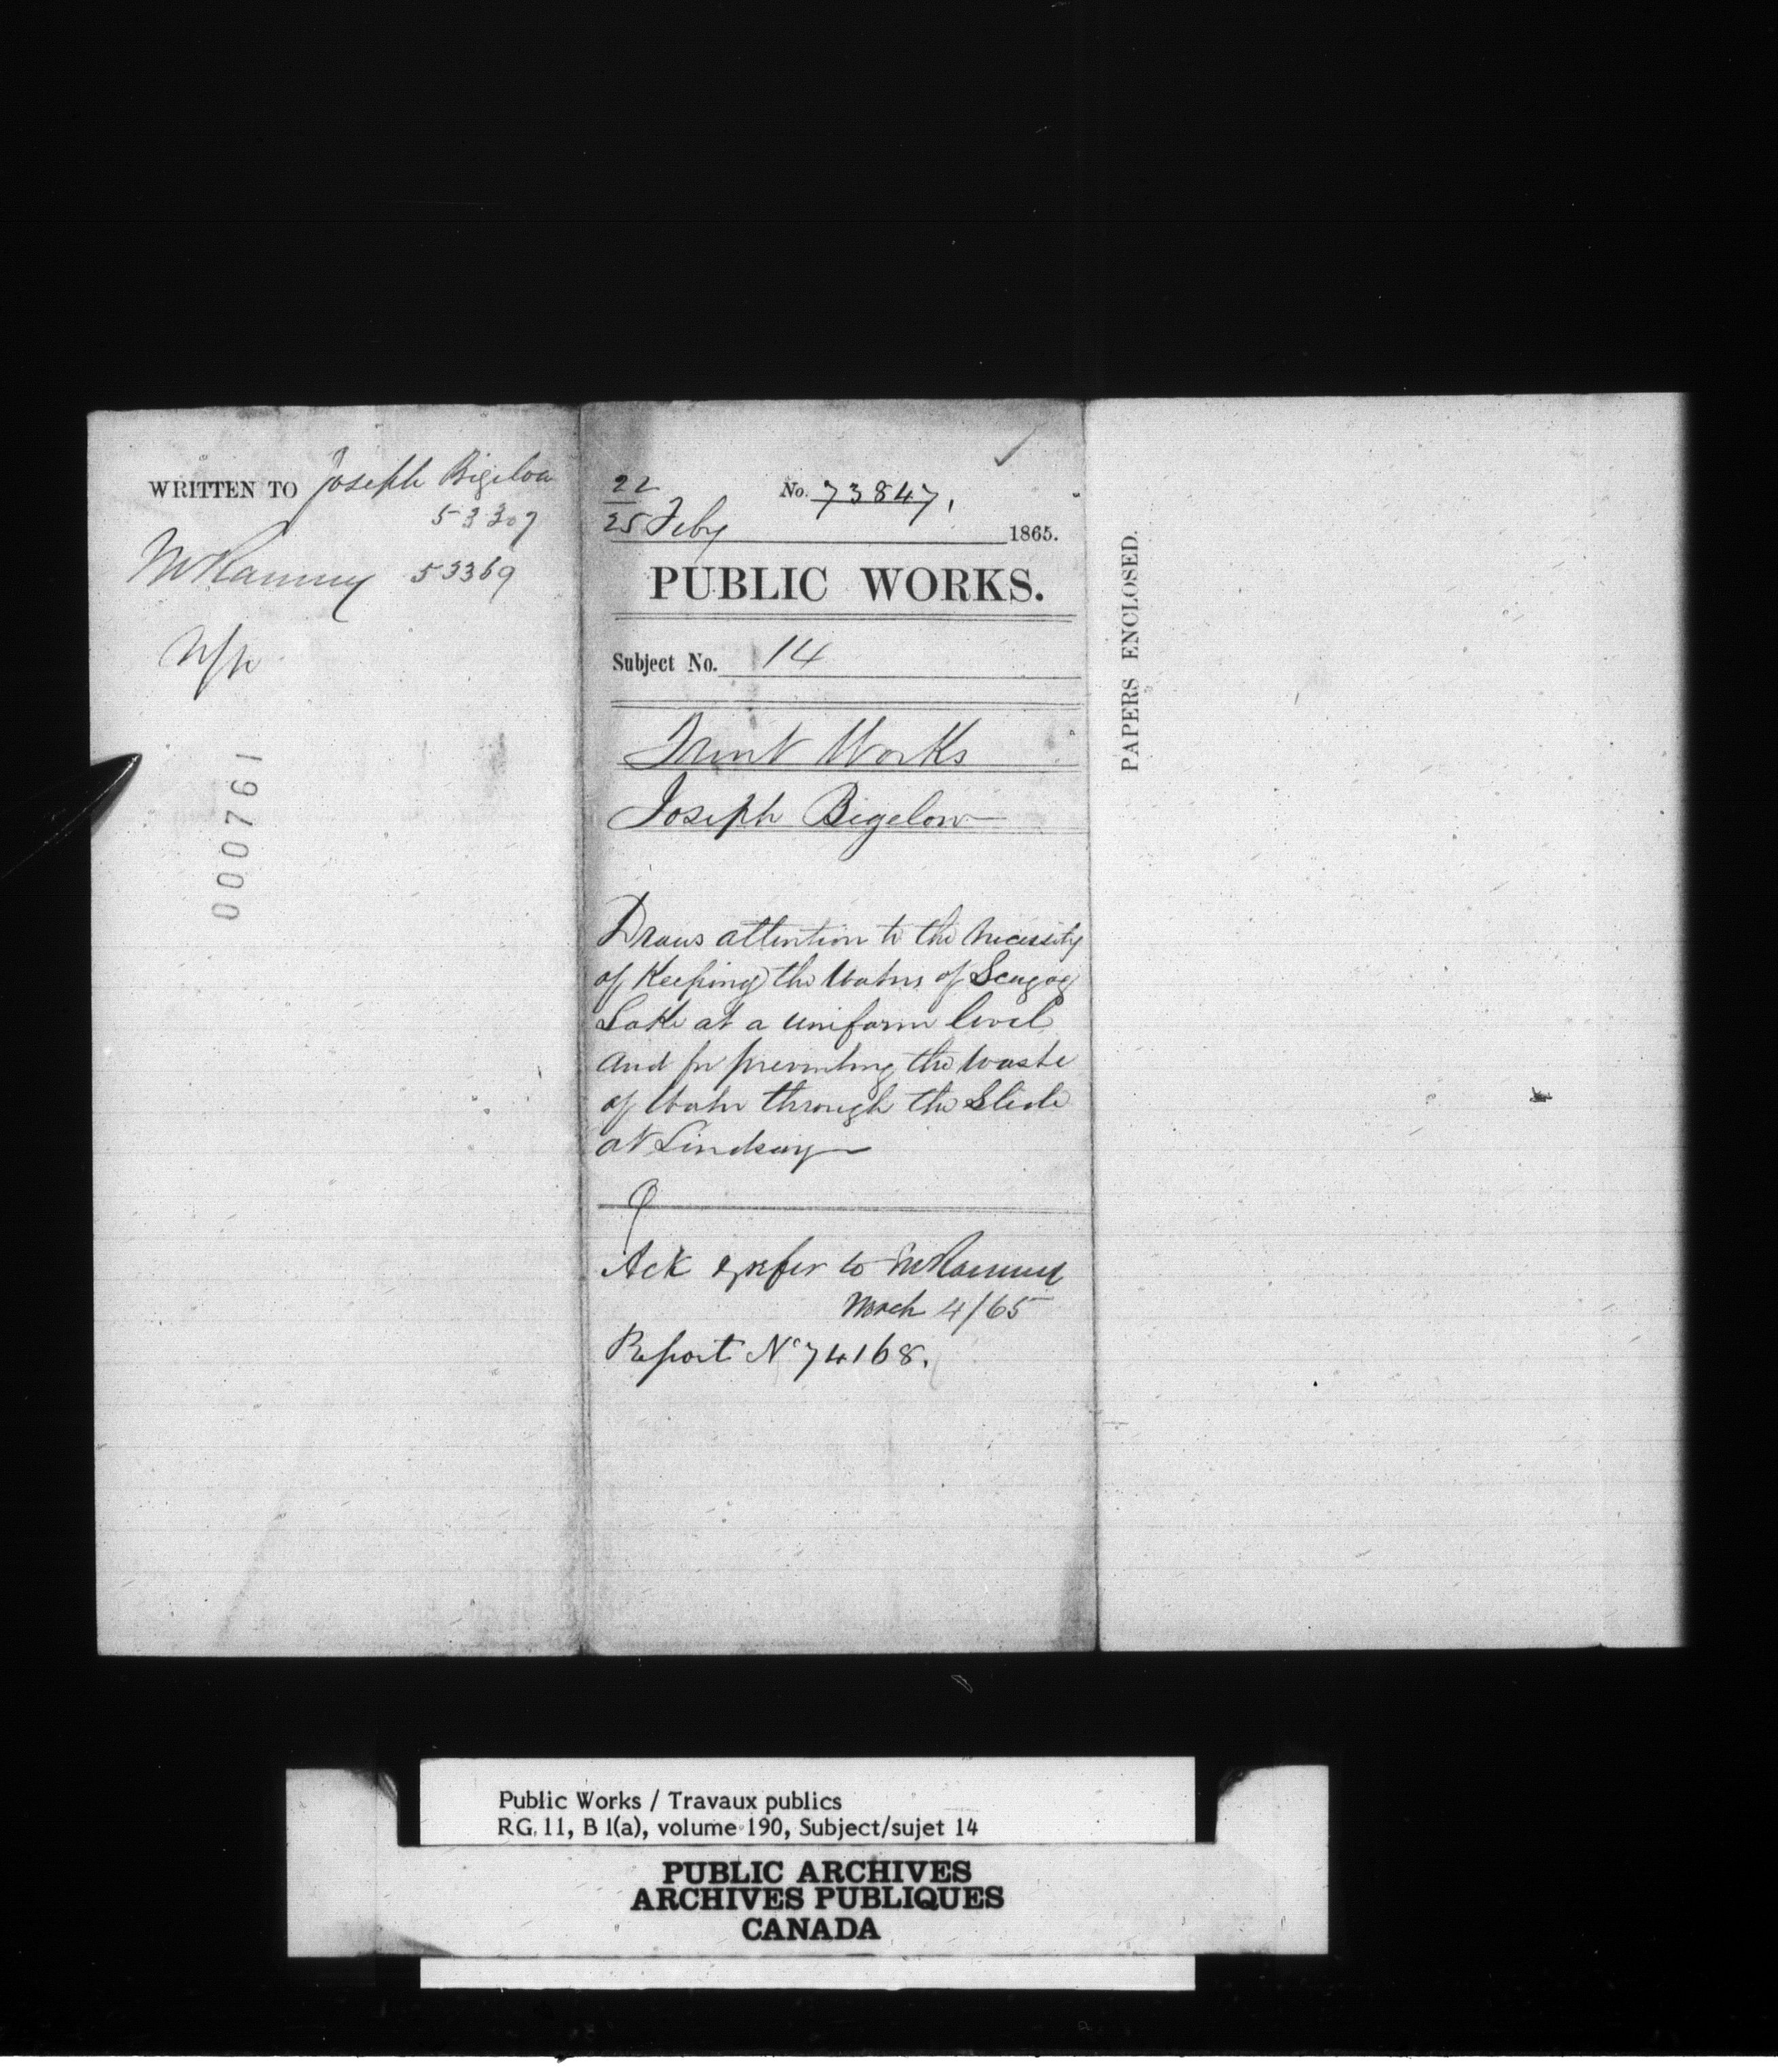 WRITTEN TO Joseph Bigelow
53307
Mr Ranney 53369
000761
22
25 Feby 1865.
No. 73847,
PUBLIC WORKS.
Subject No. 14
Trent Works
Joseph Bigelow
Draws attention to the necessity
of Keeping the Waters of Scugog
Lake at a uniform level
and for preventing the waste
of Water through the Slide
at Lindsay
Ack & refer to Mr Ranney
March 4/65
Report No 74168.
PAPERS ENCLOSED.
Public Works / Travaux publics
RG 11, B 1(a), volume 190, Subject/sujet 14
PUBLIC ARCHIVES
ARCHIVES PUBLIQUES
CANADA